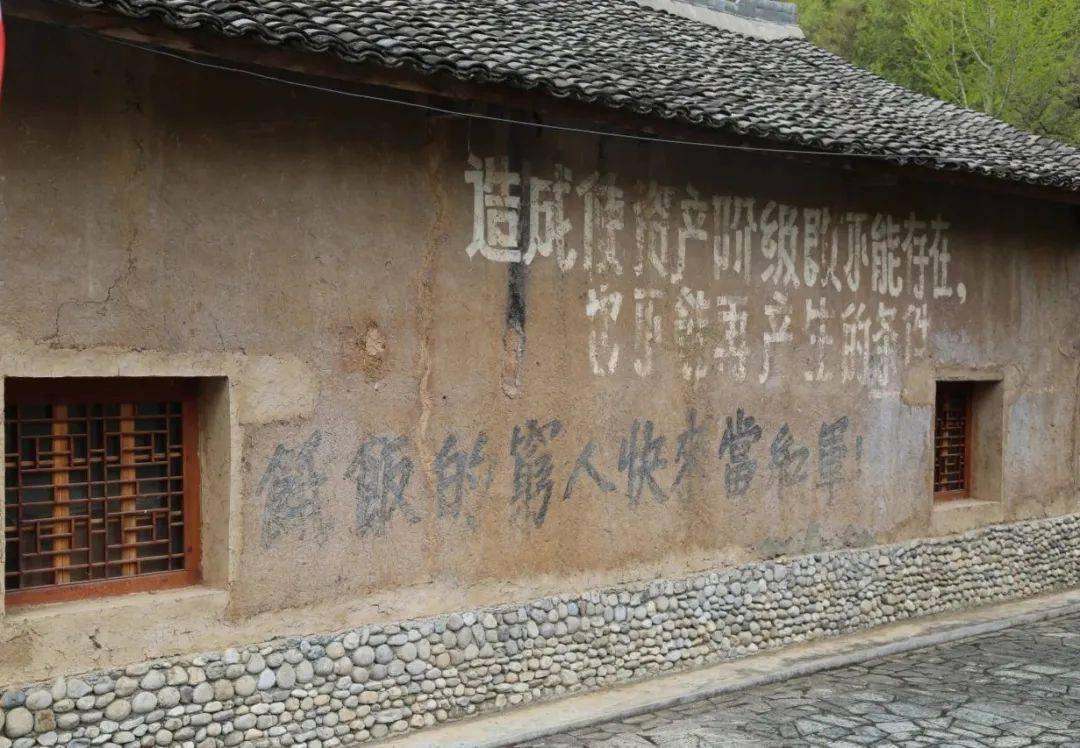 造成使资产阶级既不能存在,
也不能再产生的条件
餓飯的窮人快來當紅軍!